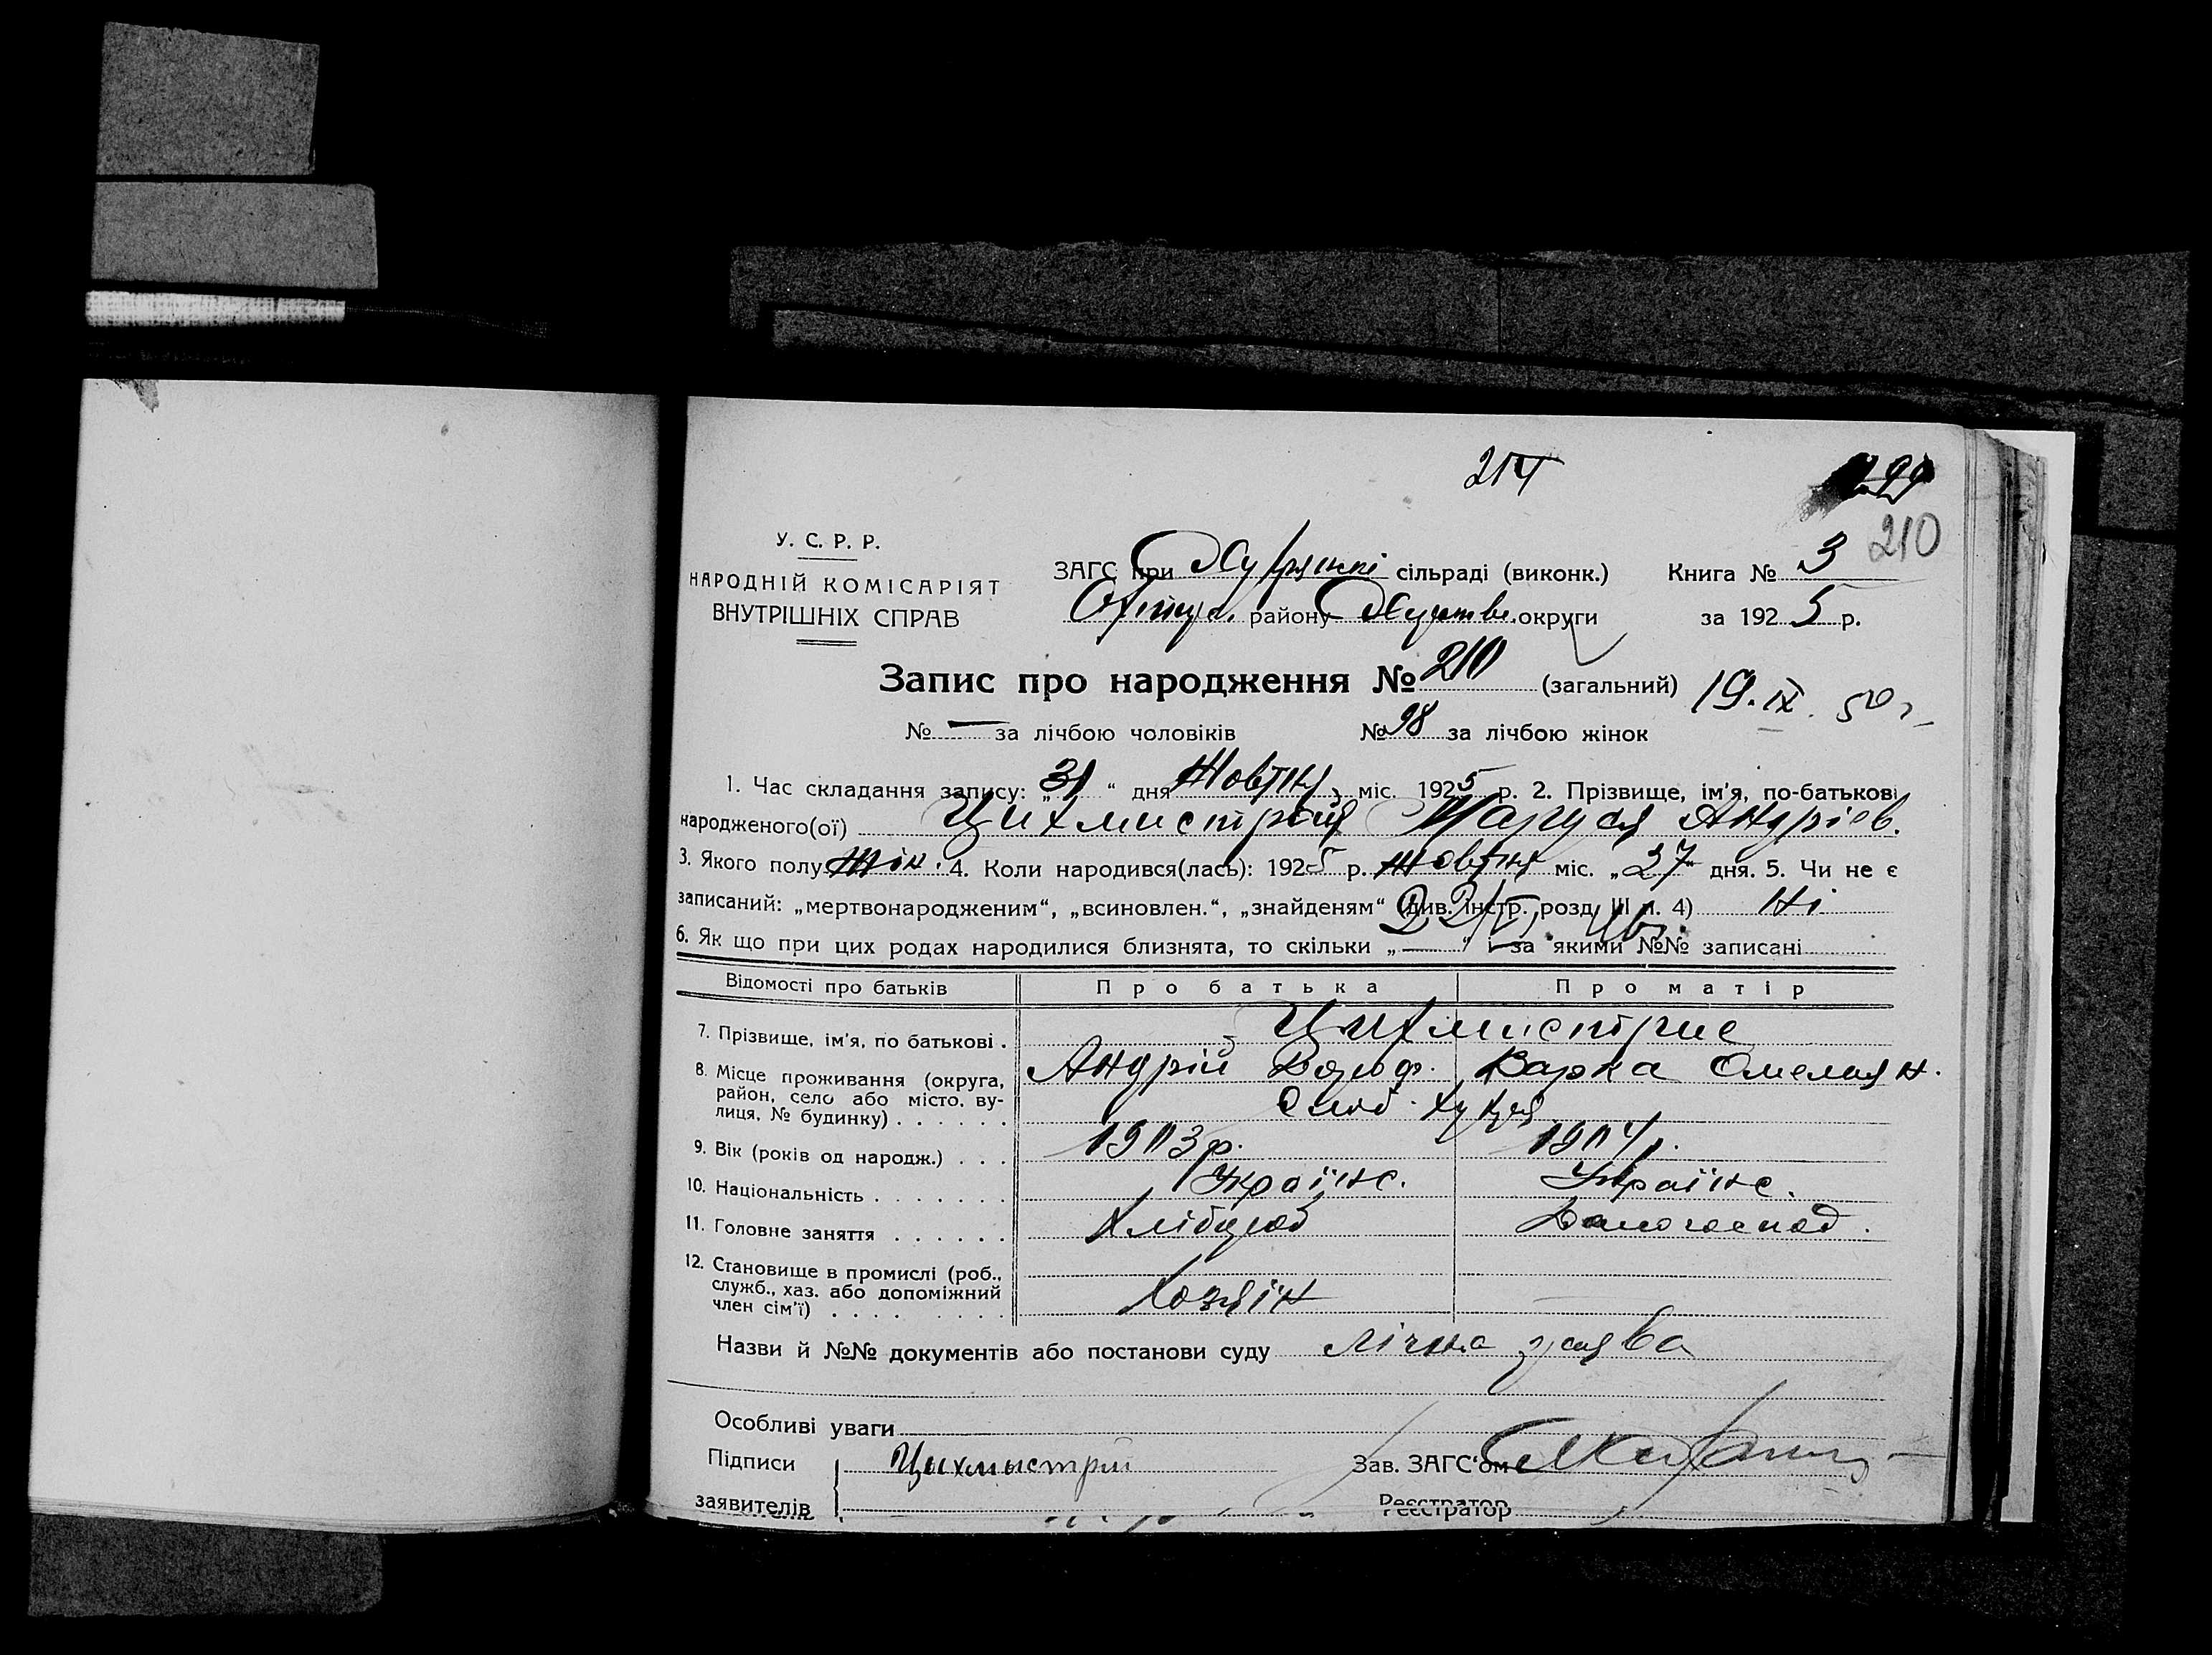 214
210
У. С. Р. Р.
НАРОДНІЙ КОМІСАРІЯТ
ВНУТРІШНІХ СПРАВ
ЗАГС при сільраді (виконк.) Книга № 3
району округи за 1925 р.
Запис про народження № 210 (загальний) 19.IX.50 г
№ — за лічбою чоловіків № 98 за лічбою жінок
1. Час складання запису: „31“ дня Жовтня міс. 1925 р. 2. Прізвище, ім'я, по-батькові
народженого(ої) Цихмистрой Маруся Андріев.
3. Якого полу Жін. 4. Коли народився(лась): 1925 р. Жовтня міс. „27“ дня. 5. Чи не є
записаний: „мертвонародженим“, „всиновлен.“, „знайденям“ (див. інстр. розд. III п. 4) Ні
6. Як що при цих родах народилися близнята, то скільки „—“ і за якими №№ записані
Відомості про батьків Про батька Про матір
7. Прізвище, ім'я, по батькові . Цихмистриє
Андрій Варка Омелян.
8. Місце проживання (округа,
район, село або місто, ву-
лиця, № будинку) . . . . . . Слоб.
9. Вік (років од народж.) . . . 1903 р. 1904 р.
10. Національність . . . . . . . Українс. Українс.
11. Головне заняття . . . . . . Хлібороб Домогоспод.
12. Становище в промислі (роб.,
служб., хаз. або допоміжний
член сім'ї) . . . . . . . . Хозяїн —
Назви й №№ документів або постанови суду лічна заява
Особливі уваги
Підписи Цихмыстрій Зав. ЗАГС'ом
заявителів Реєстратор